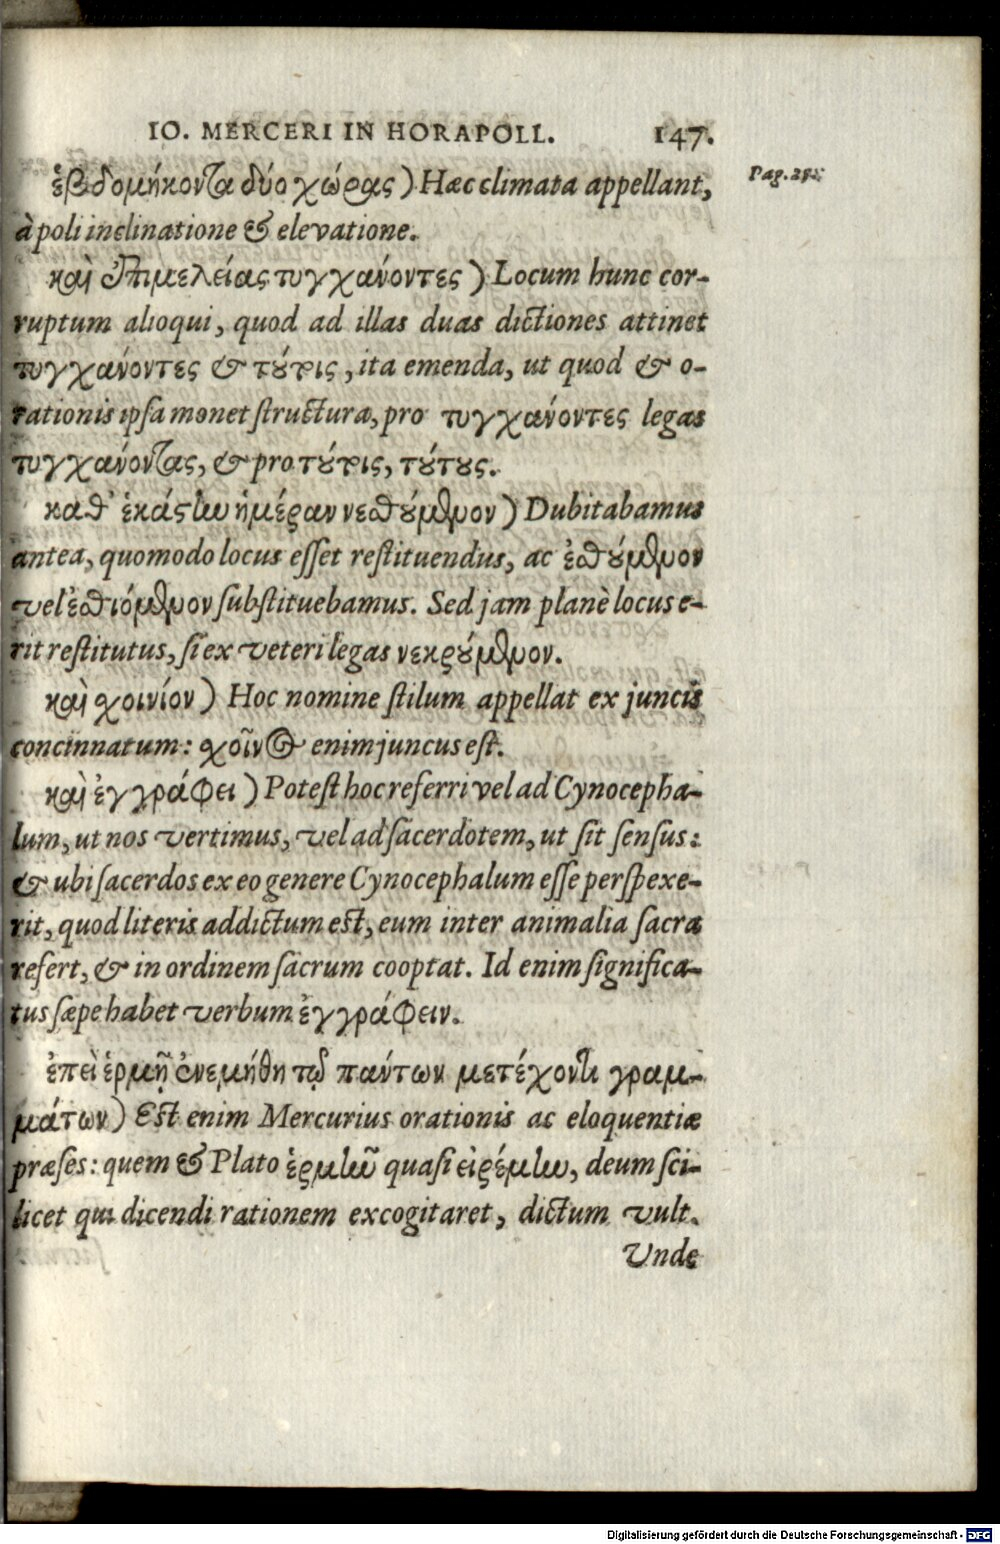 IO. MERCERI IN HORAPOLL. 147.
ἑβδομήκοντα δύο χώρας) Hæc climata appellant,
Pag.
à poli inclinatione & elevatione.
καὶ ἐπιμελείας τυγχάνοντες) Locum hunc cor-
ruptum alioqui, quod ad illas duas dictiones attinet
τυγχάνοντες & τούτοις, ita emenda, ut quod & o-
rationis ipsa monet structura, pro τυγχάνοντες legas
τυγχάνοντας, & pro τούτοις, τούτους.
καθ' ἑκάστην ἡμέραν νεσθούμενον) Dubitabamus
antea, quomodo locus esset restituendus, ac ἐσθούμενον
vel ἐσθιόμενον substituebamus. Sed jam planè locus e-
rit restitutus, si ex veteri legas νεκρούμενον.
καὶ χοινίον) Hoc nomine stilum appellat ex juncis
concinnatum: χοῖνος enim juncus est.
καὶ ἐγγράφει) Potest hoc referri vel ad Cynocepha-
lum, ut nos vertimus, vel ad sacerdotem, ut sit sensus:
& ubi sacerdos ex eo genere Cynocephalum esse perspexe-
rit, quod literis addictum est, eum inter animalia sacra
refert, & in ordinem sacrum cooptat. Id enim significa-
tus sæpe habet verbum ἐγγράφειν.
ἐπεὶ ἑρμῇ ἐνεμήθη τῷ πάντων μετέχοντι γραμ-
μάτων) Est enim Mercurius orationis ac eloquentiæ
præses: quem & Plato ἑρμῆν quasi εἰρέμην, deum sci-
licet qui dicendi rationem excogitaret, dictum vult.
Unde
Digitalisierung gefördert durch die Deutsche Forschungsgemeinschaft - DFG